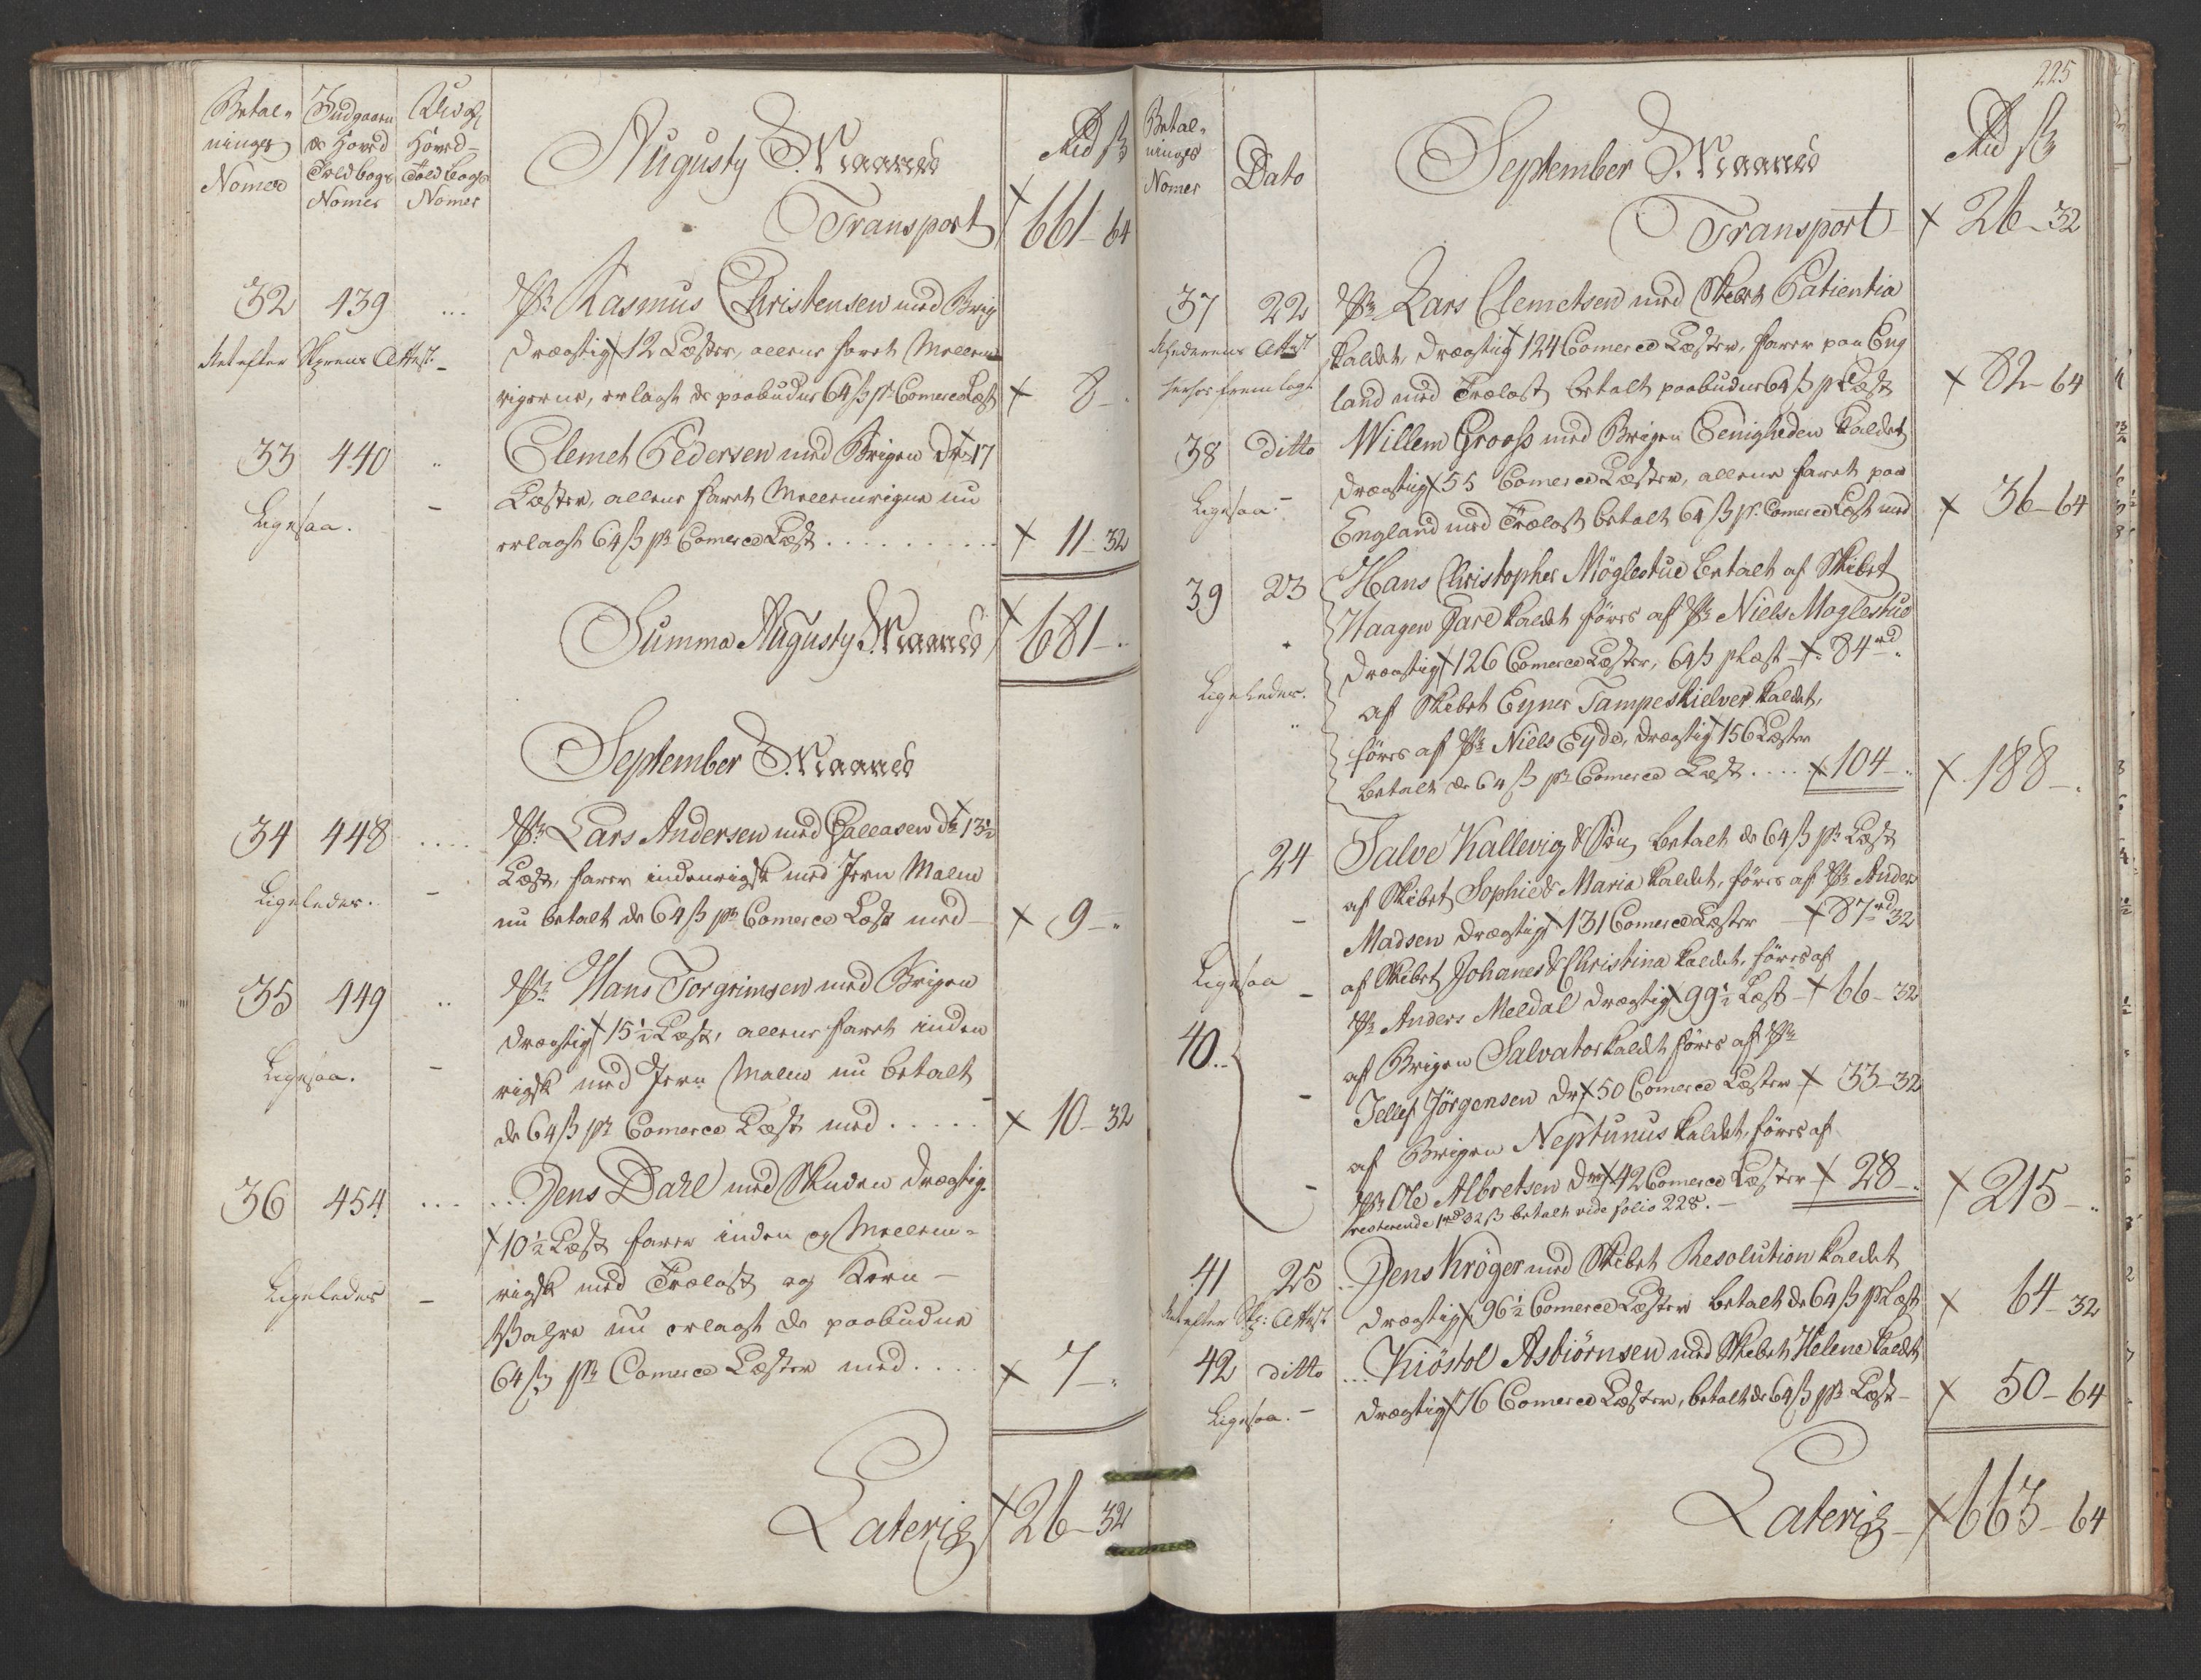 Betal-
ninges
Nomer
Indgaaen
de Hoved
Toldbogs
Nomer
Udg:
Hoved-
Toldbogs
Nomer
Augusty Maaned
Rd ß
Transport 661 - 64
32 439 ... Skr. Rasmus Christensen med Brig
Ret efter Skprens Attest - drægtig 12 Læster, allene faret Mellem
rigerne, erlagt de paabudne 64 ß pr Comerce Læst 8 -
33 440 " Clemet Pedersen med Brigen dr 17
Ligesaa. - Læster, allene faret Mellemrigne nu
erlagt 64 ß pr Comerce Læst .......... 11 - 32
Summa Augusty Maaned 681 - "
September Maaned
34 448 .... Skr Lars Andersen med Galeasen dr 13½
Ligeledes. - Læst, farer indenrigsk med Jern Malm
nu betalt de 64 ß pr Comerce Læst med - 9 - "
35 449 .. Skr Hans Torgrimsen med Brigen
drægtig 15½ Læst, allene faret inden
Ligesaa. - rigsk med Jern Malm nu betalt
de 64 ß pr Comerce Læst med ..... 10 - 32
36 454 .... ... Jens Dahl med Skuden drægtig.
10½ Læst farer inden og Mellem-
Ligeledes - rigsk med Trælast og Korn-
Vahre nu erlagt de paabudne
64 ß pr Comerce Læster med .... 7 - "
Lateris 26 - 32
225
Betal-
ninges
Nomer
Dato
September Maaned
Rd ß
Transport 26 - 32
37 22 Skr Lars Clemetsen med Skibet Patientia
Rhederens Attest kaldet, drægtig 124 Comerce Læster, farer paa Eng
herfor fremlagt land med Trælast betalt paabudne 64 ß pr Læst 82 - 64
38 ditto Willem Grooss med Brigen Eenigheden kaldet
drægtig 55 Comerce Læster, allene faret paa
Ligesaa. - England med Trælast betalt 64 ß pr. Comerce Læst med 36 - 64
39 23 Hans Christopher Möglestue betalt af Skibet
Haagen Jarl kaldet föres af Skr Niels Moglestue
drægtig 126 Comerce Læster, 64 ß pr Læst - 84 rd "
Ligeledes. af Skibet Eyner Tampeskielver kaldet,
föres af Skr Niels Eyde, drægtig 156 Læster
betalt de 64 ß pr Comerce Læst .... 104 - " 188 - .
24 Salve Kallevig & Søn, betalt de 64 ß pr Læst
af Skibet Sophie & Maria kaldet, föres af Skr Anders
- Madsen drægtig 131 Comerce Læster - 87 rd 32
af Skibet Johanes & Christina kaldet, föres af
Ligesaa - Skr Anders Meldal drægtig 99½ Læst - 66 - 32
40.. af Brigen Salvator kaldt föres af Skr
- Jellef Jörgensen dr 50 Comerce Læster 33 - 32
af Brigen Neptunus kaldet, föres af
- Skr Ole Albretsen dr 42 Comerce Læster - 28 - . 215 - "
resterende 1 rd 32 ß betalt vide folio 228. -
41 25 .. Jens Kröger med Skibet Resolution kaldet
Ret efter Skp: Attest drægtig 96½ Comerce Læster betalt de 64 ß pr Læst 64 - 32
42 ditto ... Kiöstol Asbiörnsen med Skibet Helene kaldet
Ligesaa. - drægtig 76 Comerce Læster, betalt de 64 ß pr Læst - 50 - 64
Lateris - 663 - 64